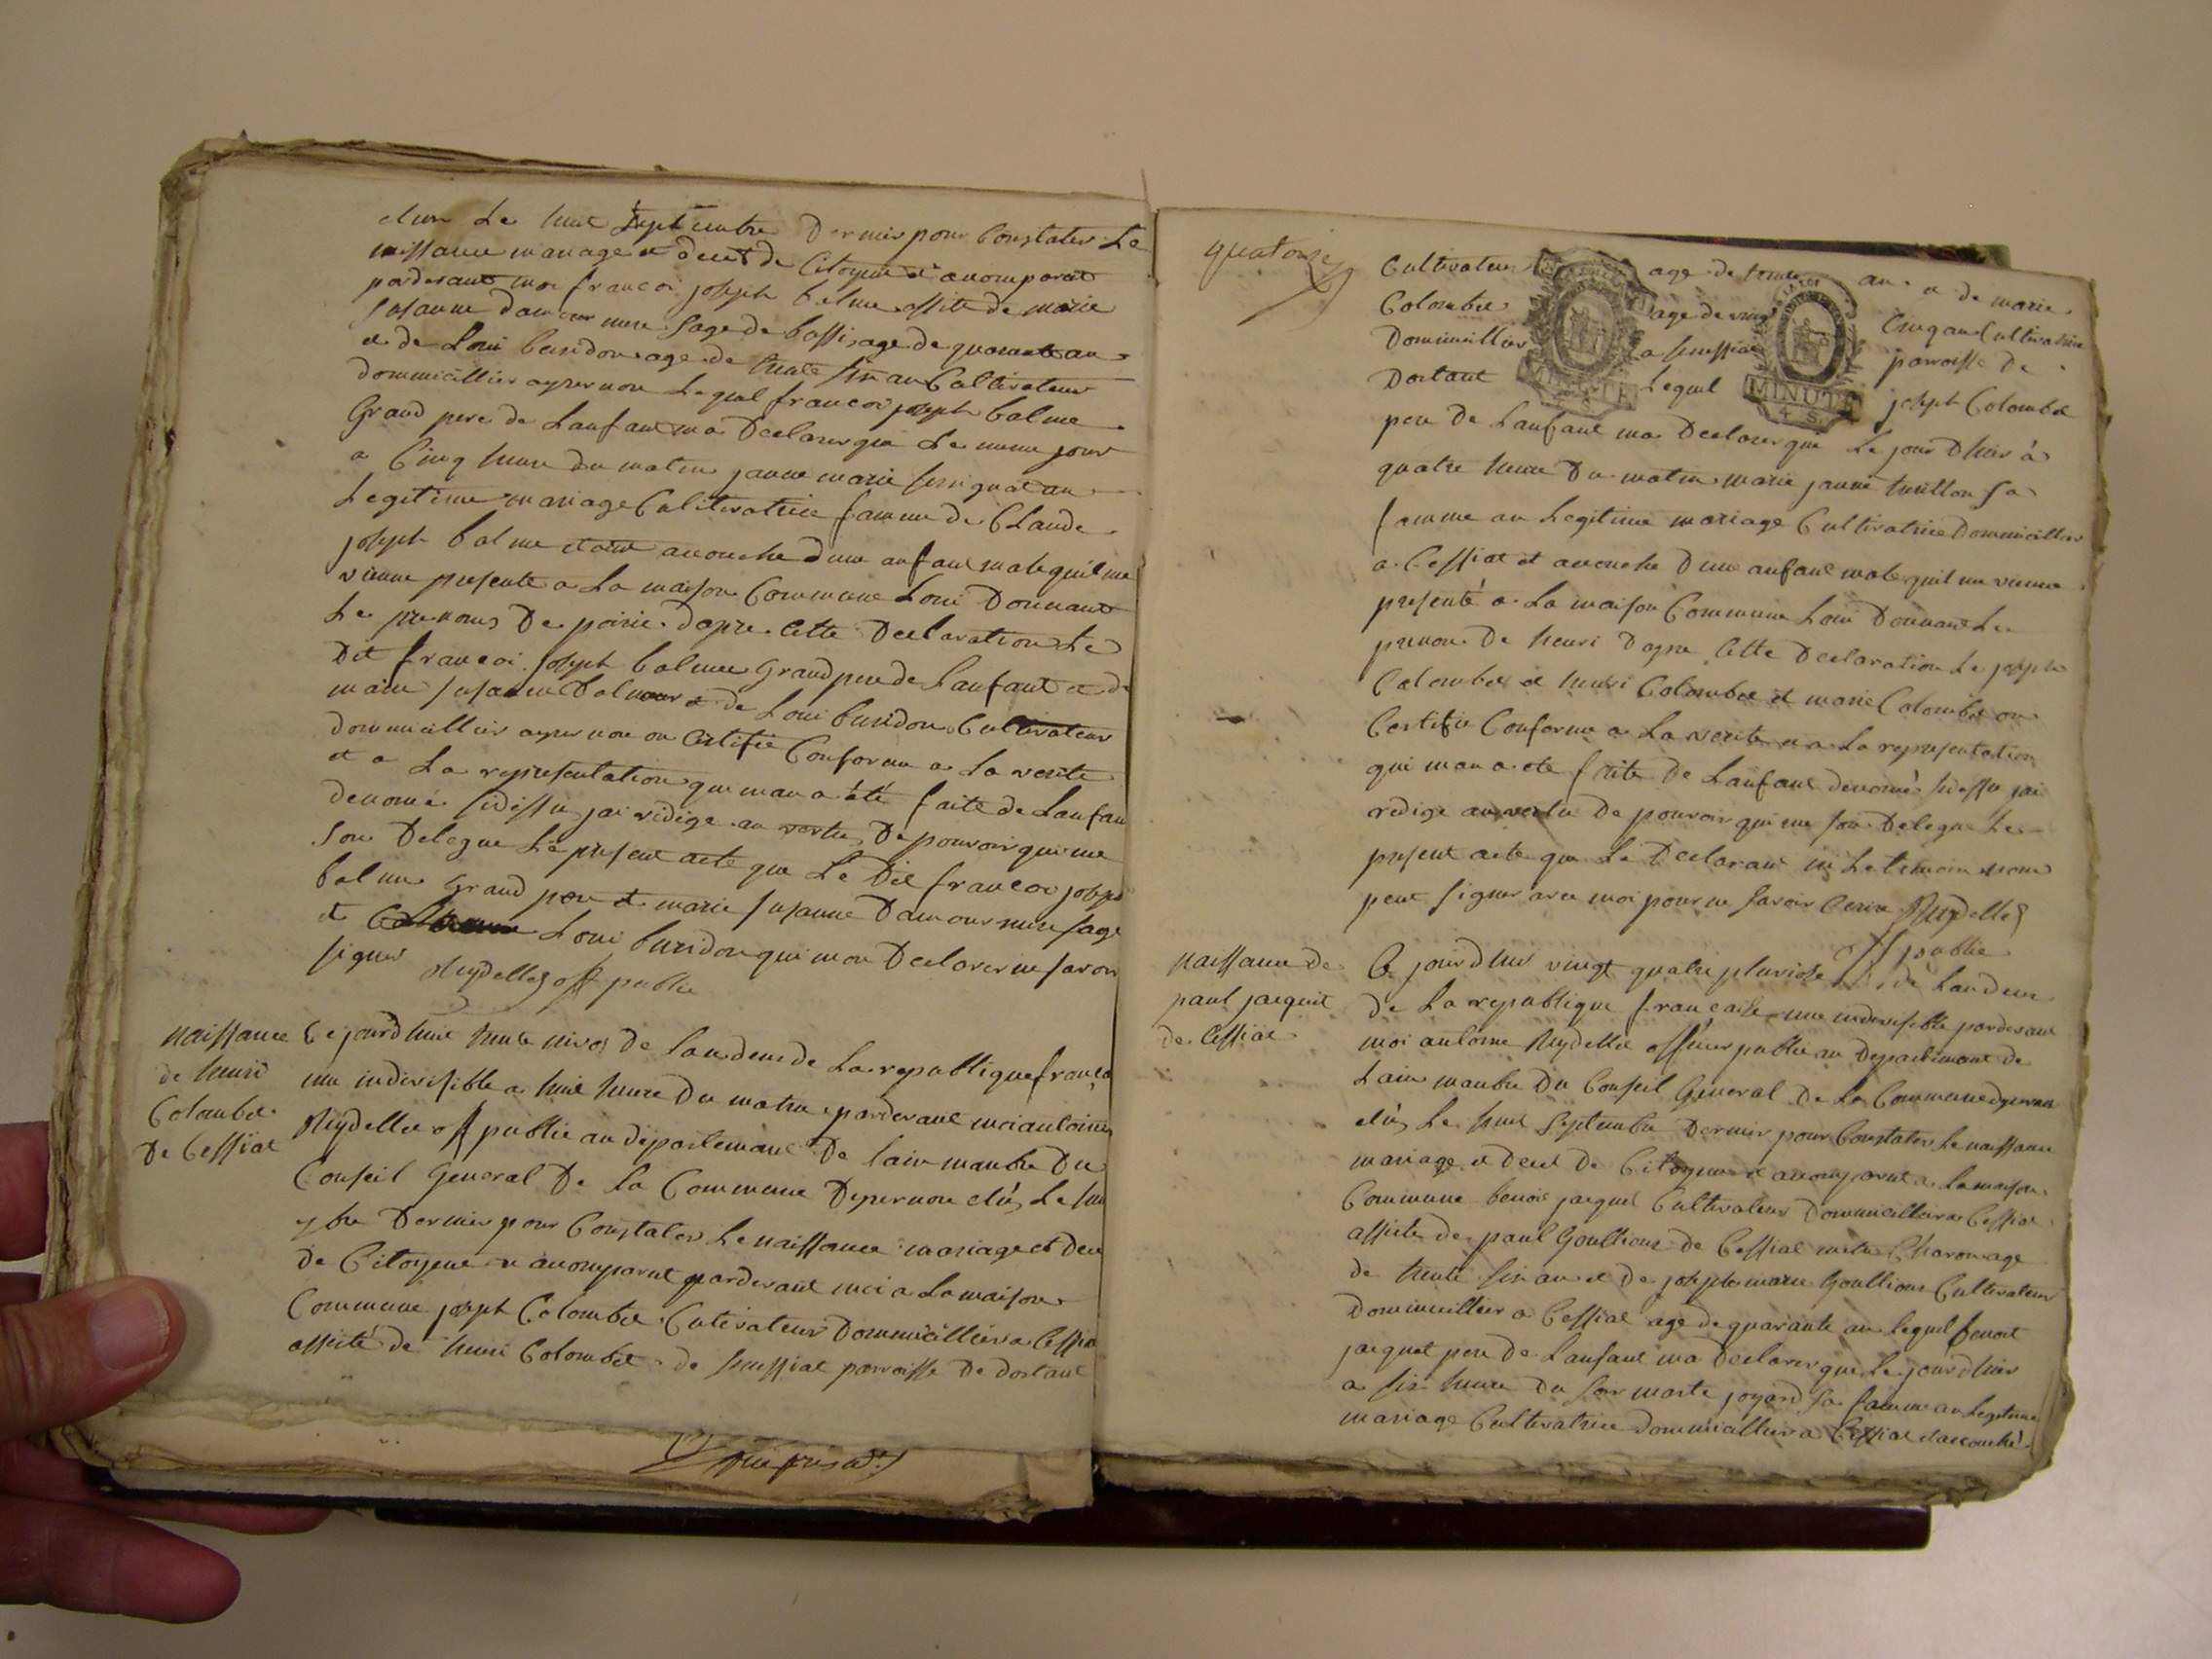 elun Le huit Septembre Dernier pour Constater Le
naissance mariage et deces de Citoyens et a comparut
pardevant moi francoi joseph balme assite de marie
susanne damour mere sage de bassi, age de quarante an
et de Loui buridon age de trente six an Cultivateur
dommicillier apernon Lequel francoi joseph balme
Grand pere de Lanfant ma Declarer que Le meme jour
a Cinq heure du matin janne marie au
Legitime mariage Cultivatrice famme de Claude
joseph balme etait acouche dune anfant male quil me
vienne presente a La maison Commune Loui Donnant
Le prenoms De d apre Cette Declaration Le
Dit francoi joseph balme Grand pere de Lanfant et de
marie susanne Dalmour et de Loui buridon Cultivateur
dommicillier apernon on Certifie Conforme a La verite
et a La representation que man a été faite de Lanfan
denomé sidessu jai redige an vertu De pouvoir qui me
son Delegue Le present acte que Le Dit francoi joseph
balme Grand pere et marie susanne Damour mere sage
et Loui buridon qui mon Declarer ne savoir
signer Reydellet off public
naissance
de henri
Colombet
De Cessiat
Ce jourd huit trente nivos de Landeux de La republique franca
une indivisible a huit heure Du matin pardevant moi antoine
Reydellet off public au departemant De Lain manbre Du
Conseil General De La Commune Depernon elú Le hui
7bre Dernier pour Constater Le naissance mariage et dec
de Citoyens et a comparut pardevant moi a La maison
Commune joseph Colombet Cutivateur Dommicillier a Cessia
assisté de henri Colombet de parroisse De dortant
quatorze
Cultivateur age de an et de marie
Colombet age de vingt Cinq an Cultivatrice
Dommicillier a parroisse De
Dortant Lequel joseph Colombet
MINUTE
4 S.
pere De Lanfant ma Declarer que Le jour Dhier à
quatre heure Du matin marie janne sa
famme an Legitime mariage Cultivatrice Dommicillier
a Cessiat et acouche Dune anfant male quil me vienne
presenté a La maison Commune Loui Donnant Le
prenon De henri Dapre Cette Declaration Le joseph
Colombet et henri Colombet et marie Colombet on
Certifie Conforme a La verite et a La representation
qui man a ete faite De Lanfant denomé sidessu jai
redige an vertu De pouvoir qui me son Delegue Le
present acte que Le Declarant ni Le temoin non
peut signer avec moi pour ne savoir Cerire Reydellet
off public
naissance de
paul jacquit
de Cessiat
Ce jourdhui vingt quatre pluviose de Landeux
de La republique francaise une indivisible pardevant
moi antoine Reydellet officier public au Departemant de
Lain manbre Du Conseil General De La Commune depernon
elú, Le huit Septembre Dernier pour Constater Le naissance
mariage et deces De Citoyens et a comparut a La maison
Commune benoit jacquet Cultivateur Dommicillier a Cessiat
assiste de paul Goultiour de Cessiat metre Charon age
de trente six an et De joseph marie Goultiour Cultivateur
Dommicillier a Cessiat age de quarante an Lequel benoit
jacquet pere De Lanfant ma Declarer que Le jour dhier
a six heure Du soir marte joyard sa famme an Legitime
mariage Cultivatrice Dommicillier a Cessiat et acouché